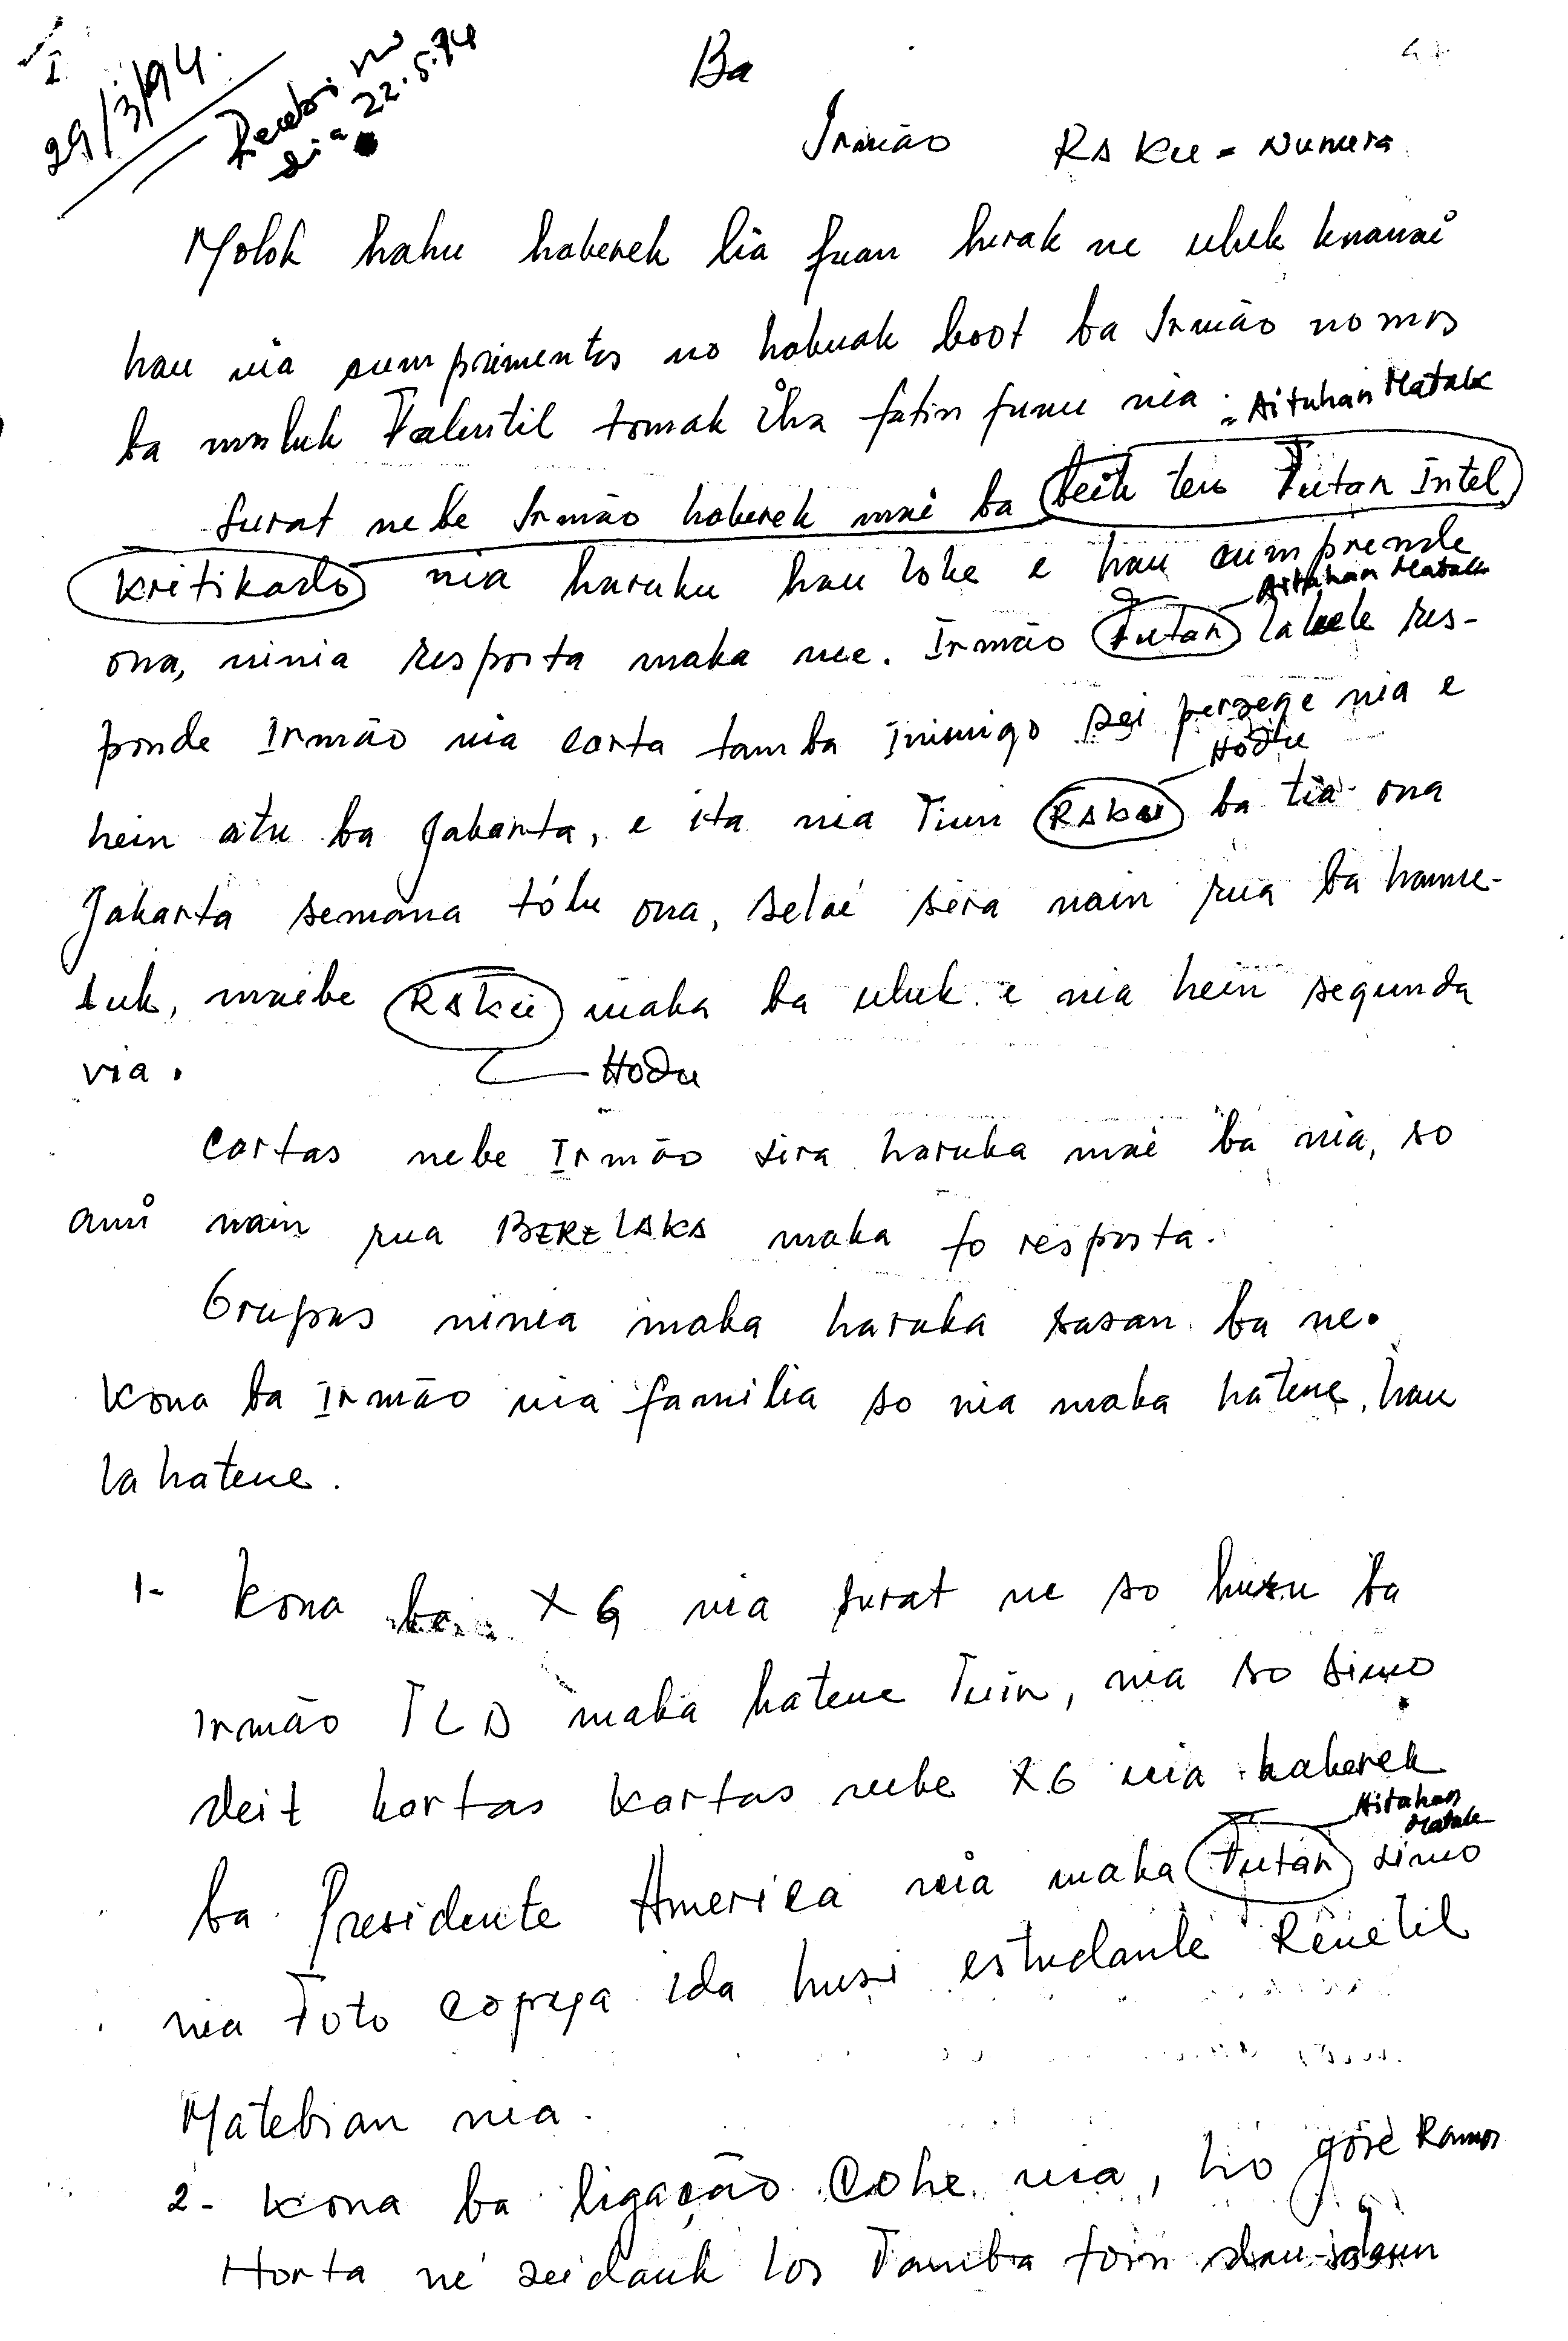 I
29/3/94.
Recebi no
dia 22.5.94
Ba
Irmão RAKU = Numura
Molok hahu hakerek lia fuan hirak ne uluk knanai
hau nia cumprimentos no hakuak boot ba Irmão no mos
ba maluk Falintil tomak iha fatin funu nia.
= Aituhan Matak
Surat nebe Irmão hakerek mai ba beik teu Futar Intel
Kritikado nia haruku hau loke e hau cumprende
Aitahan Matak
ona, ninia resposta maka nee. Irmão Futar labele res-
ponde Irmão nia carta tamba inimigo sei persege nia e
Hodu
hein atu ba Jakarta, e ita nia Tiun RAKU ba tia ona
Jakarta semana tólu ona, selaè sira nain rua ba hamu-
tuk, maibe RAKU maka ba uluk e nia hein segunda
via.
Hodu
Cartas nebe Irmão sira haruka mai ba nia, so
ami nain rua BERELAKA maka fo resposta.
Grupus ninia maka haruka sasan ba ne.
Kona ba Irmão nia familia so nia maka hatene, hau
la hatene.
1- Kona ba X G nia surat ne so husu ba
Irmão TLD maka hatene Tuir, nia so simo
deit kartas kartas nebe X G nia hakerek
Aitahan
Matak
ba Presidente America nia maka Futar simo
nia Foto copya ida husi estudante Renetil
Matebian nia.
2- Kona ba ligação Cohe nia, ho José Ramos
Horta ne seidauk los Tamba foin dau-daun